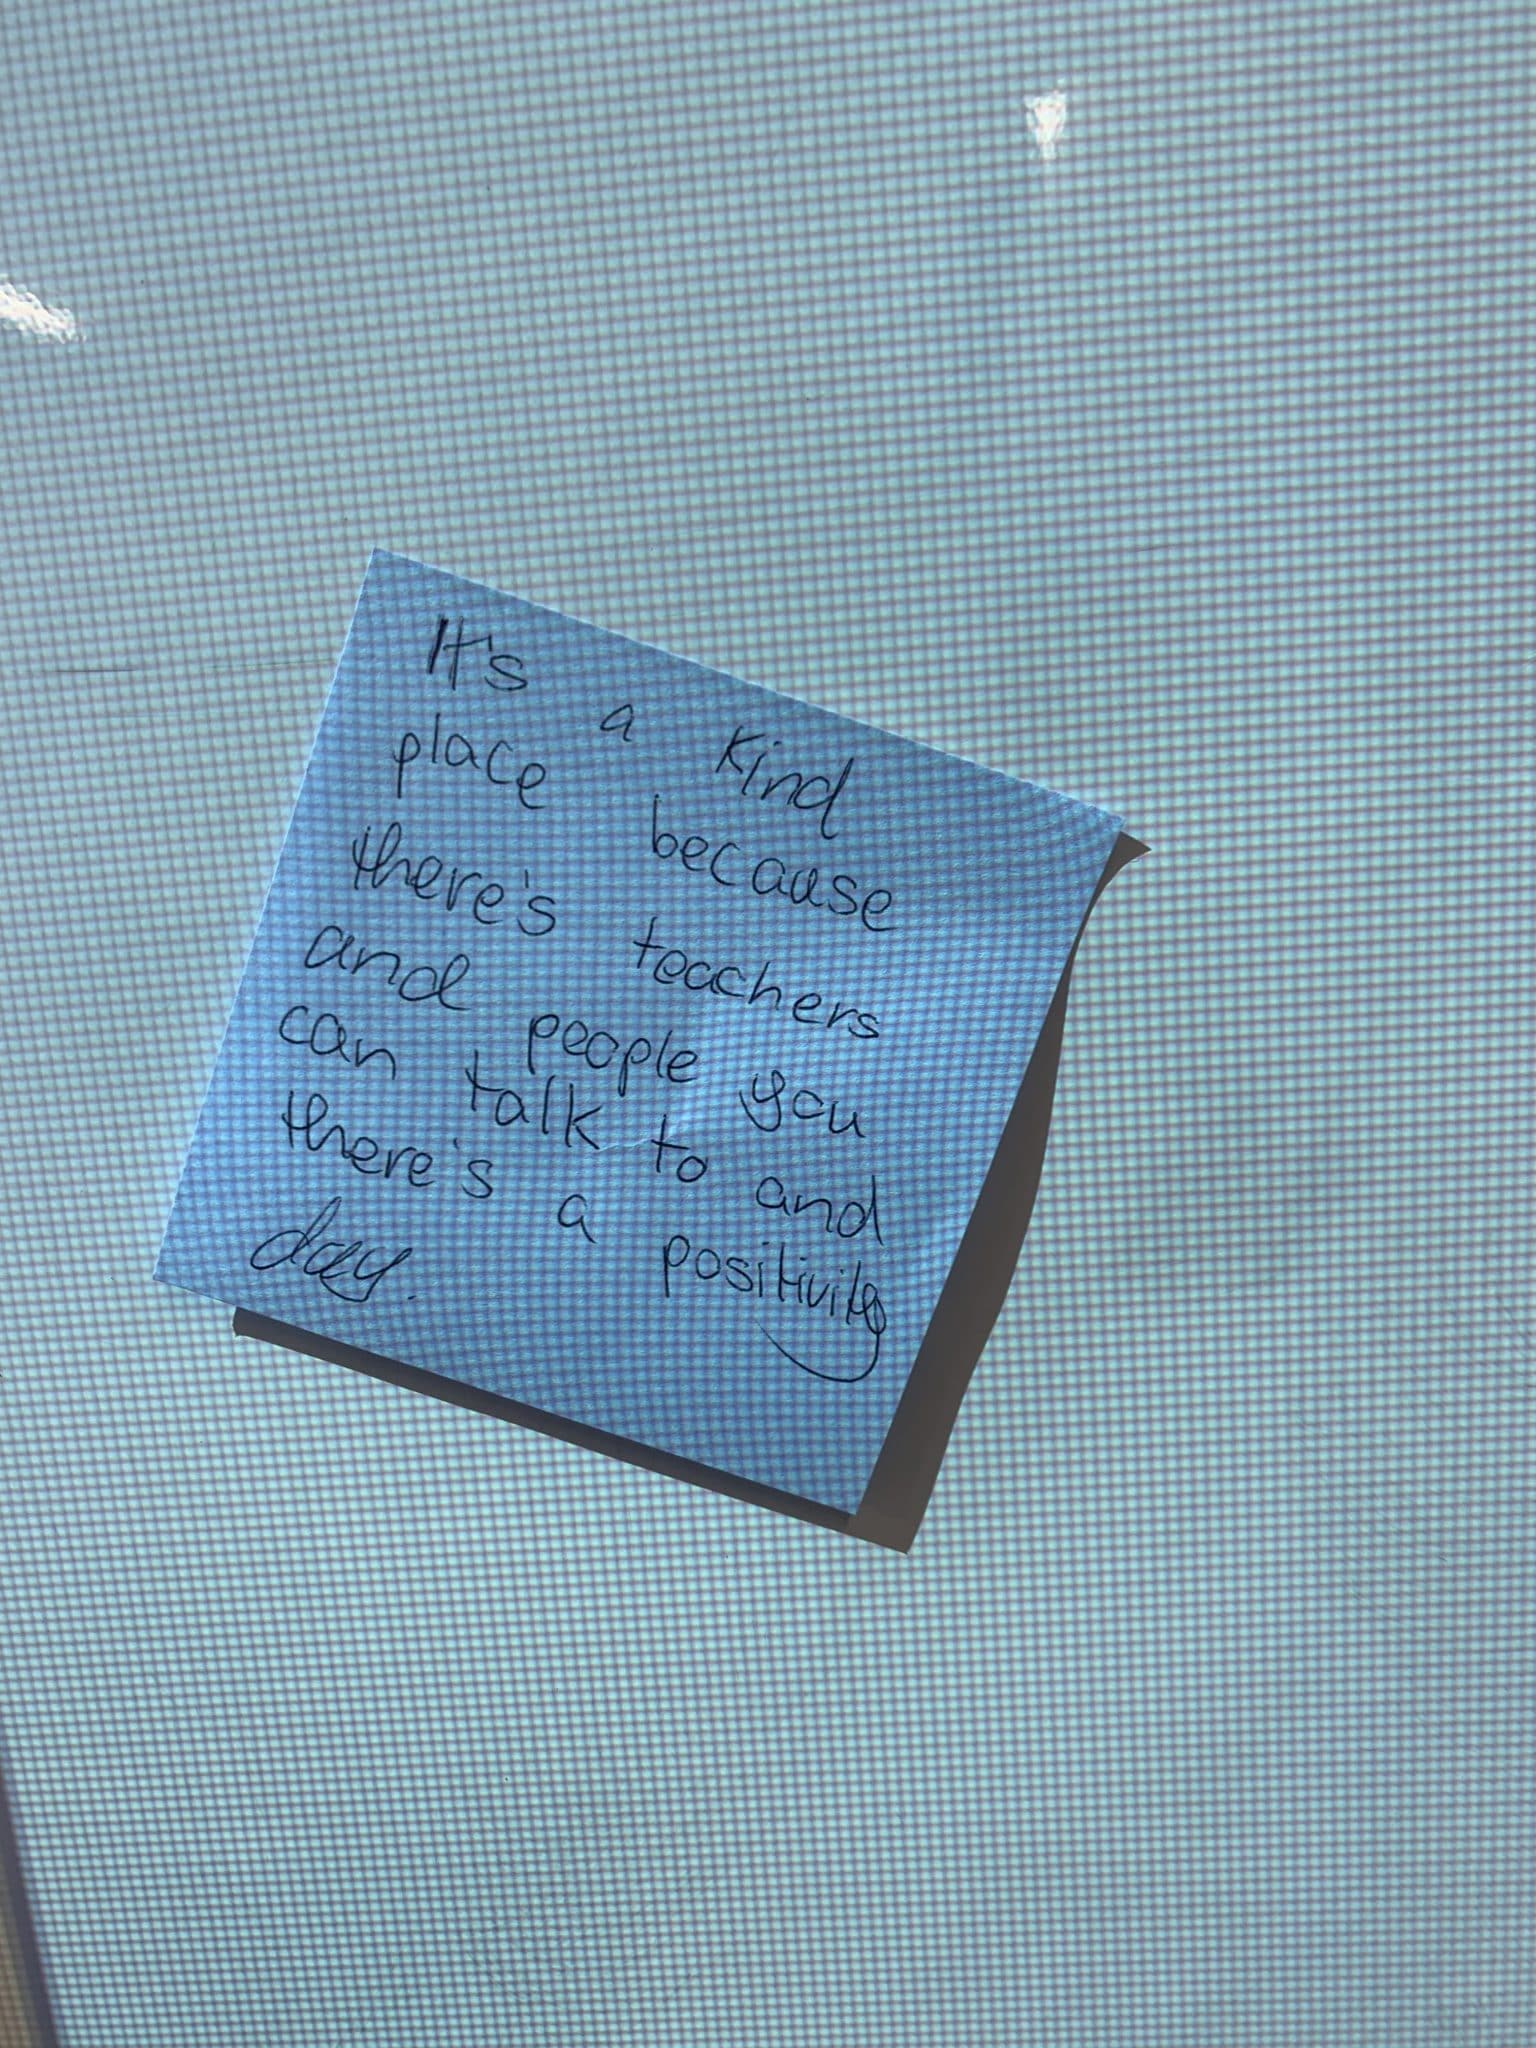 It's a kind
place because
there's teachers
and people you
can talk to and
there's a positivity
day.